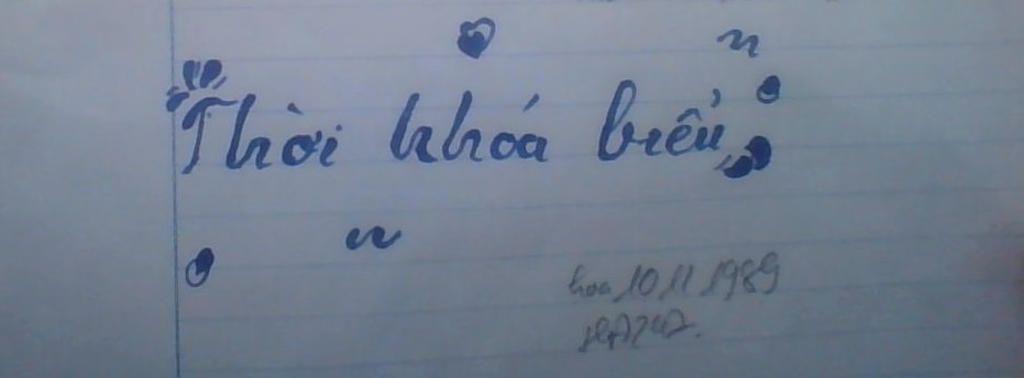 Thời khoá biểu
hoa 10 11 1989